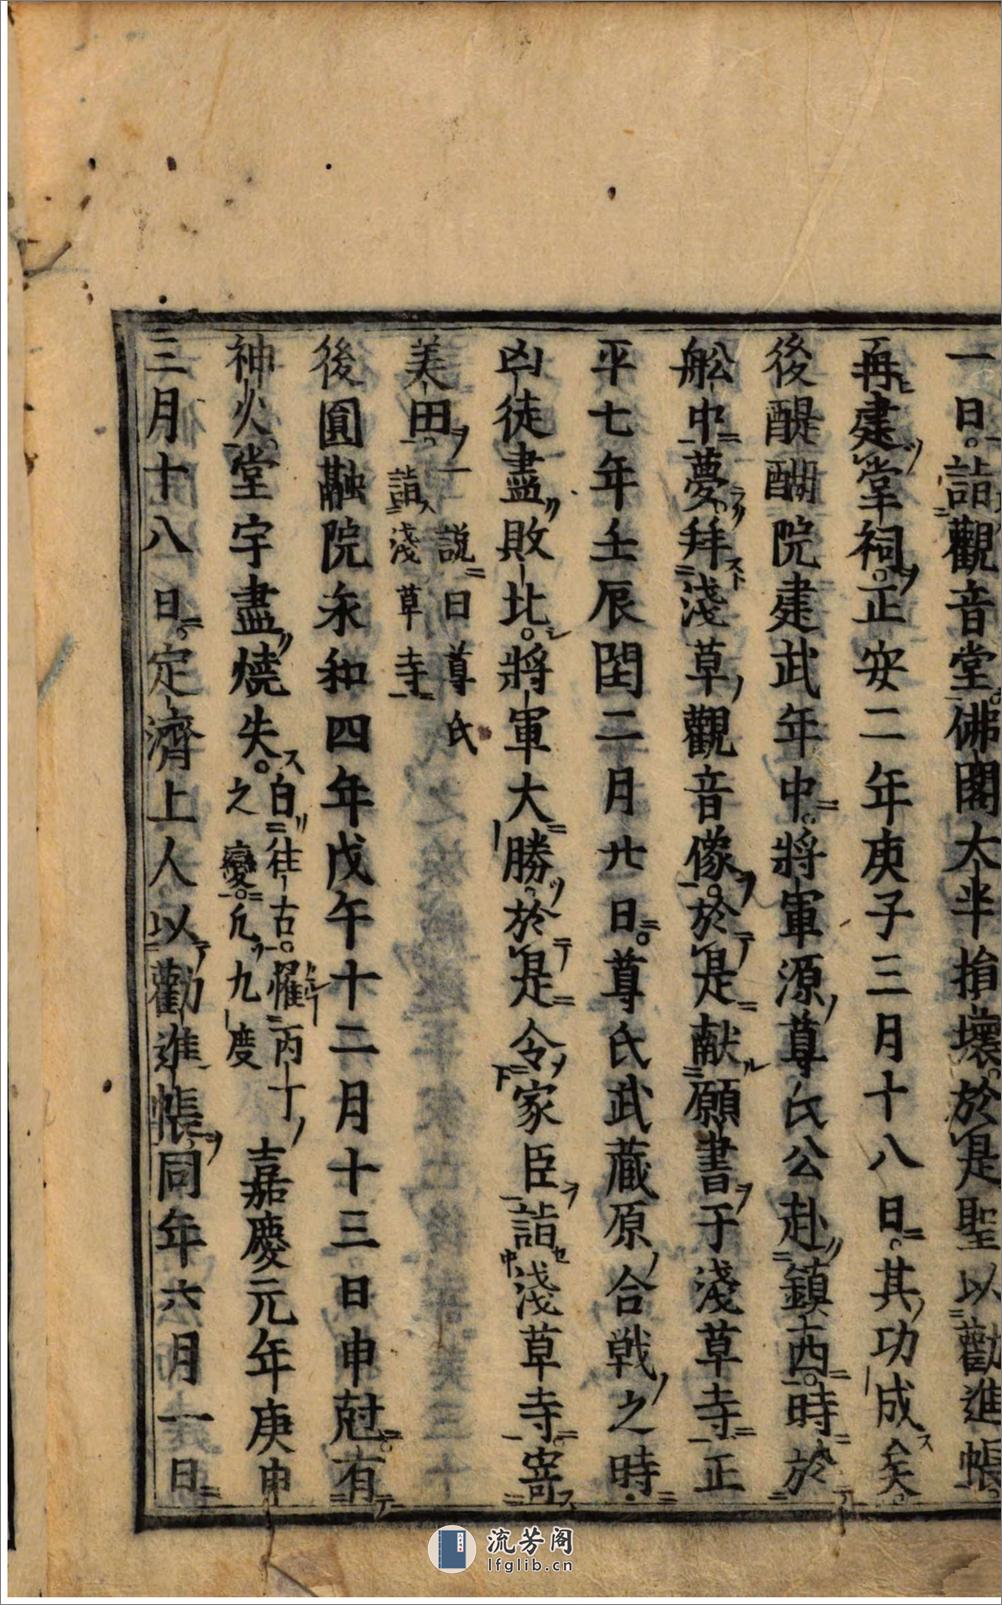 一日詣觀音堂佛閣大半損壞於是聖以勸進帳
再建堂祠正安二年庚子三月十八日其功成矣
後醍醐院建武年中將軍源尊氏公赴鎮西時於
舩中夢拜淺草觀音像於是献願書于淺草寺正
平七年壬辰閏二月廿日尊氏武藏原合戦之時
凶徒盡敗北將軍大勝於是令家臣詣淺草寺寄
美田一說曰尊氏
詣淺草寺
後圓融院永和四年戊午十二月十三日申尅有
神火堂宇盡燒失自往古罹丙丁
之變凢九度
嘉慶元年庚申
三月十八日定濟上人以勸進帳同年六月一日
流芳阁
lfglib.cn